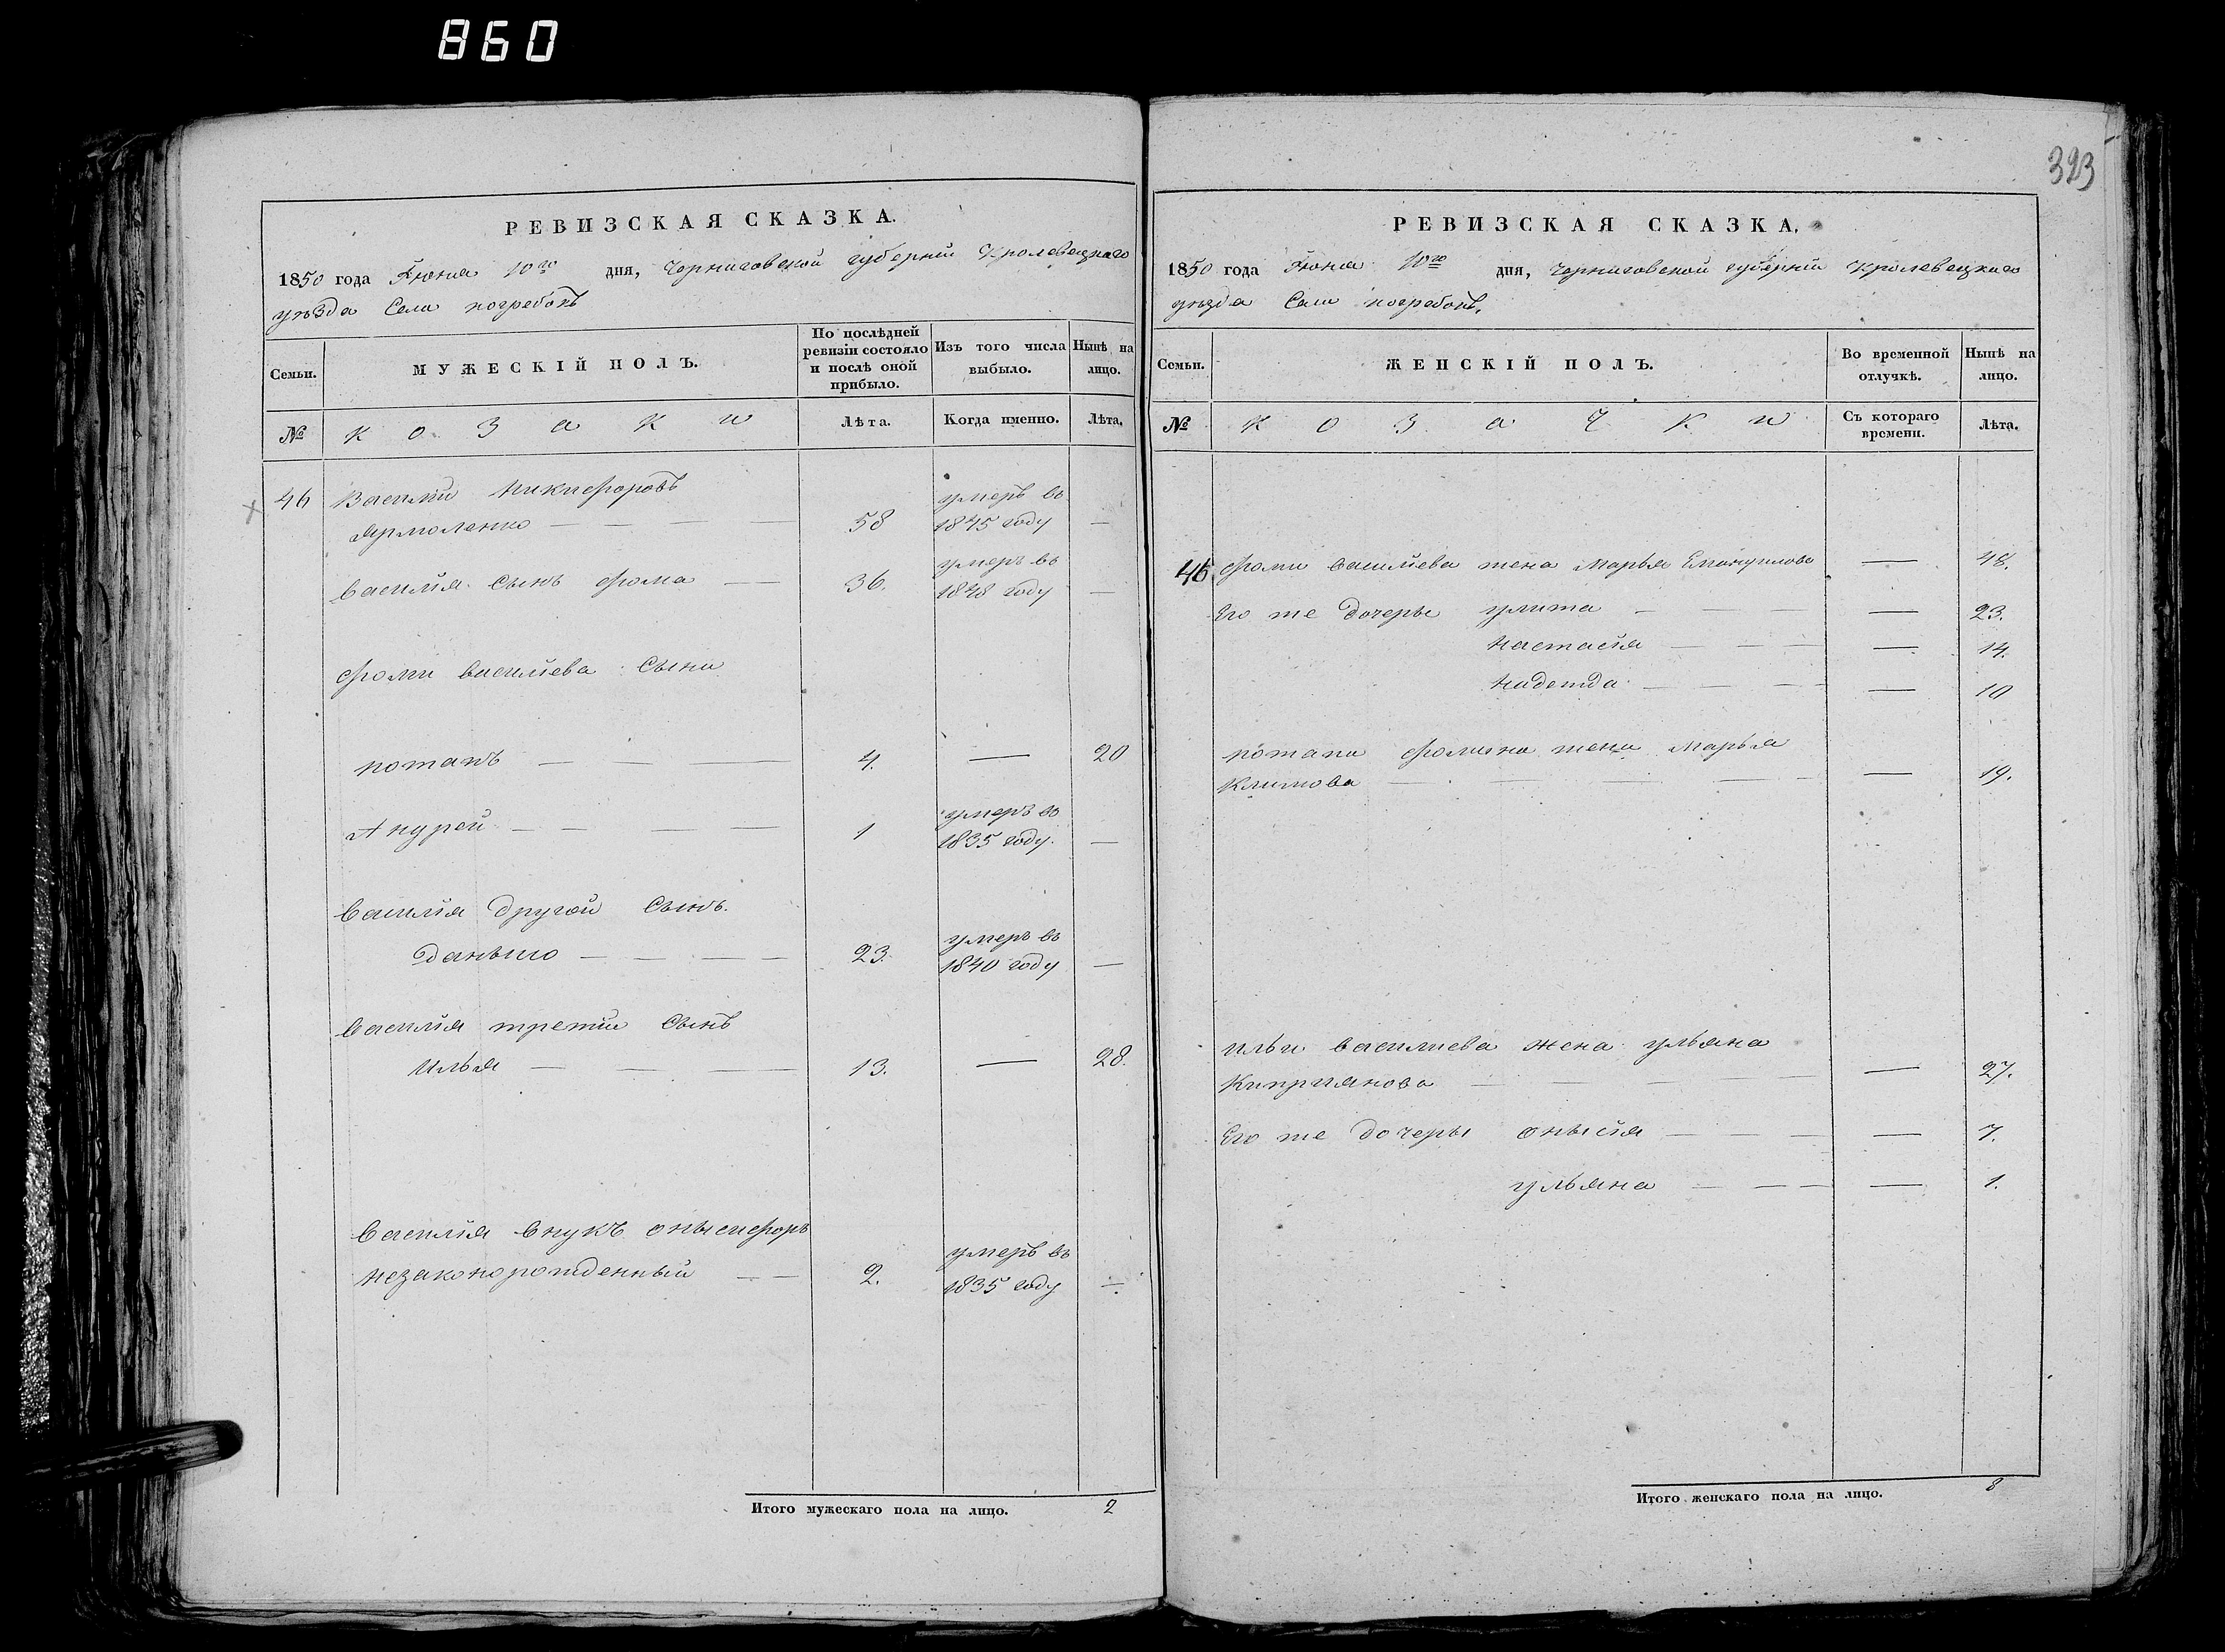 860
323
РЕВИЗСКАЯ СКАЗКА.
1850 года Іюня 10го дня, Черниговской губерніи Кролевецкаго
уезда Села погребокъ
Семьи.
МУЖЕСКІЙ ПОЛЪ.
По послѣдней ревизіи состояло и послѣ оной прибыло.
Изъ того числа выбыло.
Нынѣ на лицо.
№
козаки
Лѣта.
Когда именно.
Лѣта.
46 Василий Никифоровъ
Ярмоленко — — — — 58 умеръ въ 1845 году —
василия сынъ фома — 36. умеръ въ 1848 году —
фоми василиева сыни
потапъ — — — 4. — 20
Акурей — — — — 1 умеръ въ 1835 году. —
василия другой сынъ.
даныло — — — — 23. умеръ въ 1840 году —
василия третий сынъ
Илья — — — 13. — 28.
василия внукъ онысифоръ
незаконорожденный — — 2. умеръ въ 1835 году —
Итого мужескаго пола на лицо. 2
РЕВИЗСКАЯ СКАЗКА.
1850 года Іюня 10го дня, Черниговской губерніи Кролевецкаго
уезда Села погребокъ,
Семьи.
ЖЕНСКІЙ ПОЛЪ.
Во временной отлучкѣ.
Нынѣ на лицо.
№
козачки
Съ котораго времени.
Лѣта.
46 фоми василиева жена Марья — 48.
Его же дочеры улита — — — — 23.
настасия — — — — 14.
надежда — — — — 10
потапа фомина жена Марья
Климова — — — — — 19.
ильи василиева жена ульяна
Киприянова — — — — 27.
Его же дочеры онысия — — — — 7.
ульяна — — — — 1.
Итого женскаго пола на лицо. 8